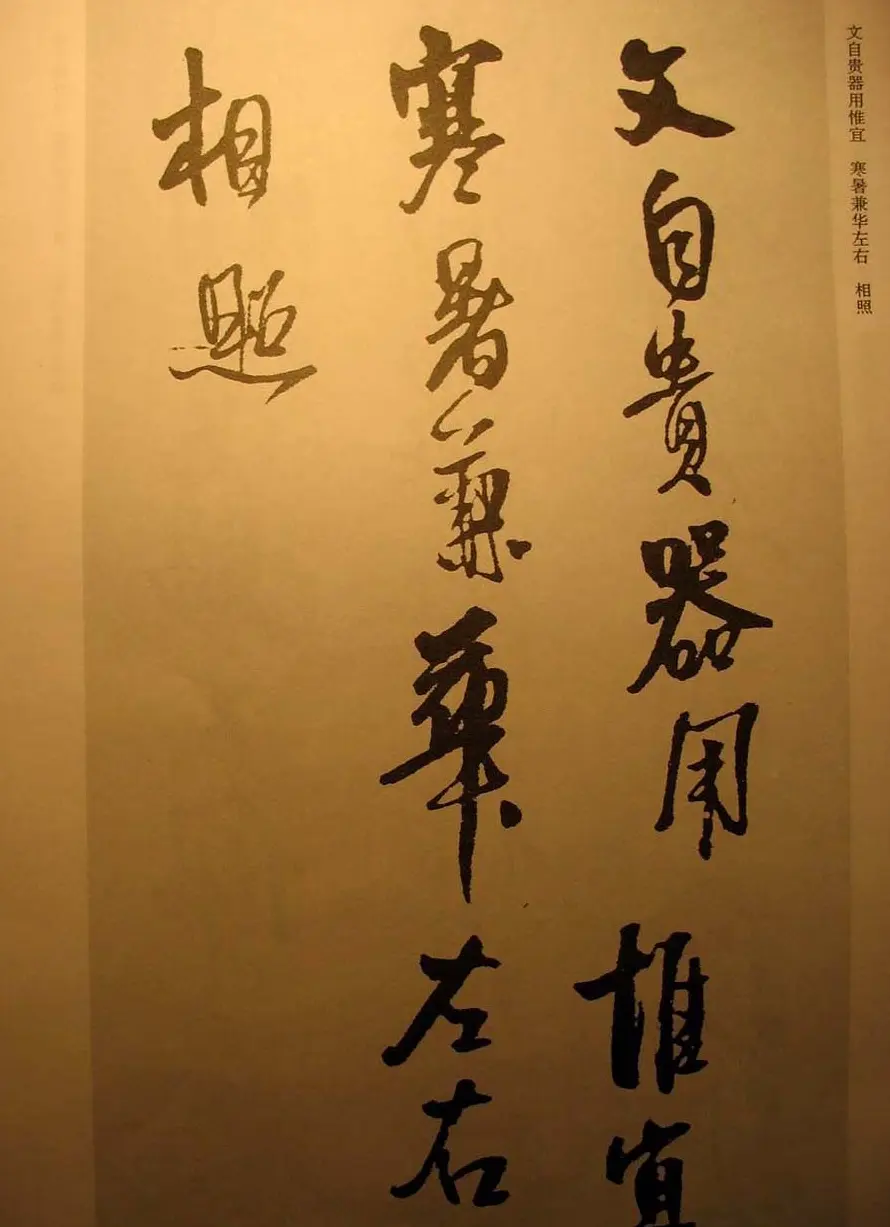 文自贵器用惟宜　寒暑兼华左右　相照
文自貴器用惟宜
寒暑兼華左右
相照